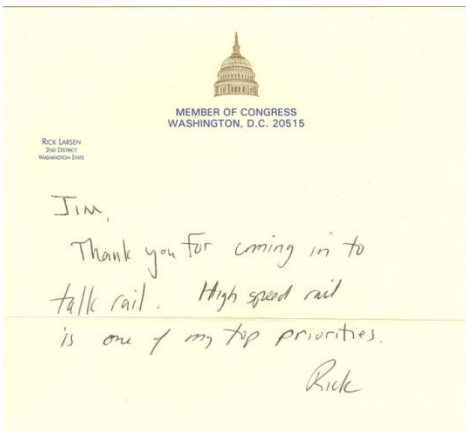 MEMBER OF CONGRESS
WASHINGTON, D.C. 20515
RICK LARSEN
2ND DISTRICT
WASHINGTON STATE
JIM,
Thank you for coming in to
talk rail. High speed rail
is one of my top priorities.
Rick